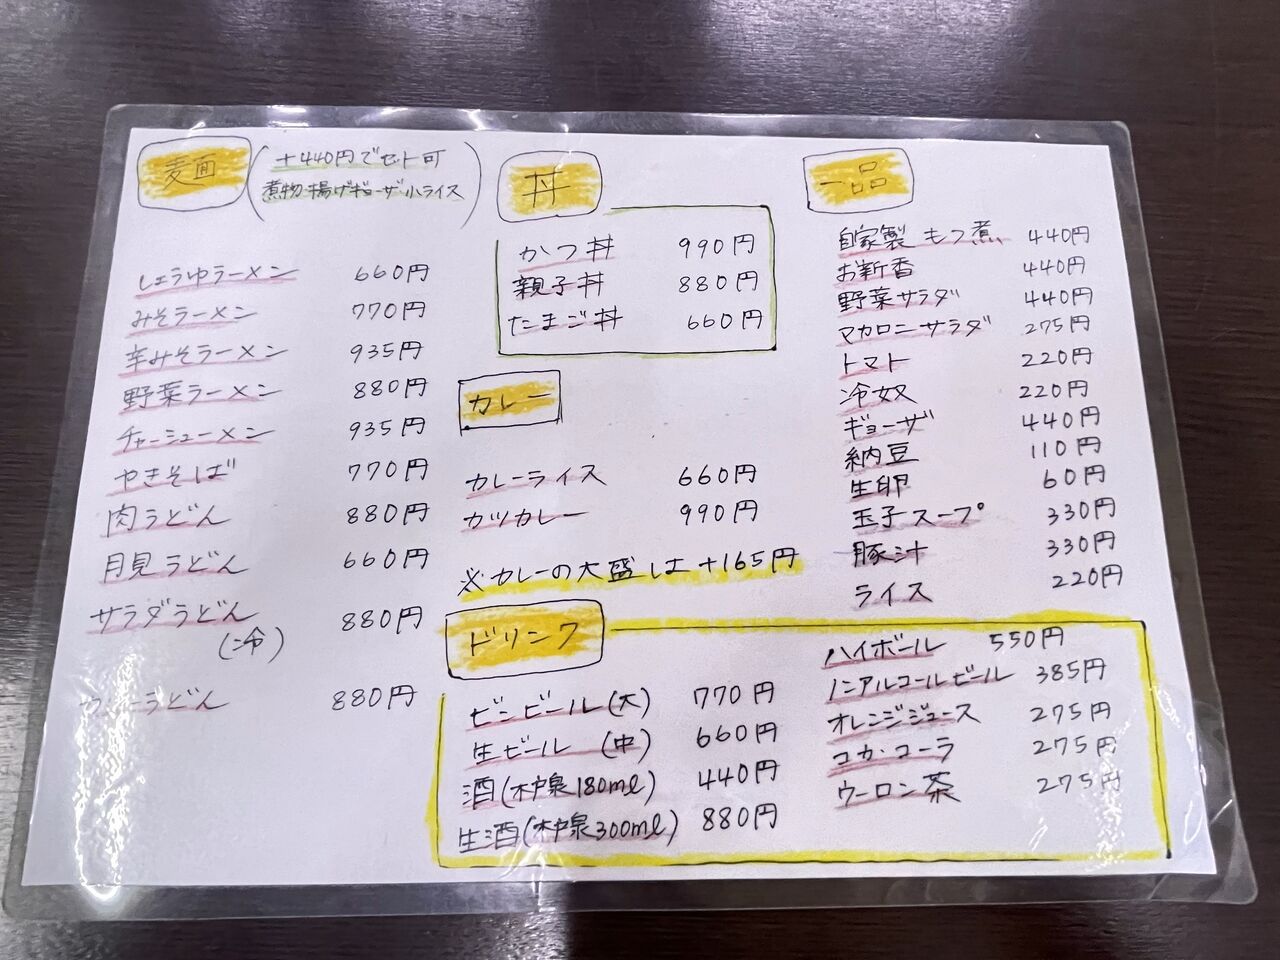 麦面 (+440円でセット可
煮物 揚げギョーザ 小ライス)
しょうゆラーメン 660円
みそラーメン 770円
辛みそラーメン 935円
野菜ラーメン 880円
チャーシューメン 935円
やきそば 770円
肉うどん 880円
月見うどん 660円
サラダうどん 880円
(冷)
うどん 880円
丼
かつ丼 990円
親子丼 880円
たまご丼 660円
カレー
カレーライス 660円
カツカレー 990円
※カレーの大盛は+165円
一品
自家製もつ煮 440円
お新香 440円
野菜サラダ 440円
マカロニサラダ 275円
トマト 220円
冷奴 220円
ギョーザ 440円
納豆 110円
生卵 60円
玉子スープ 330円
豚汁 330円
ライス 220円
ドリンク
ビンビール(大) 770円
生ビール (中) 660円
酒(木戸泉180ml) 440円
生酒(木戸泉300ml) 880円
ハイボール 550円
ノンアルコールビール 385円
オレンジジュース 275円
コカ・コーラ 275円
ウーロン茶 275円